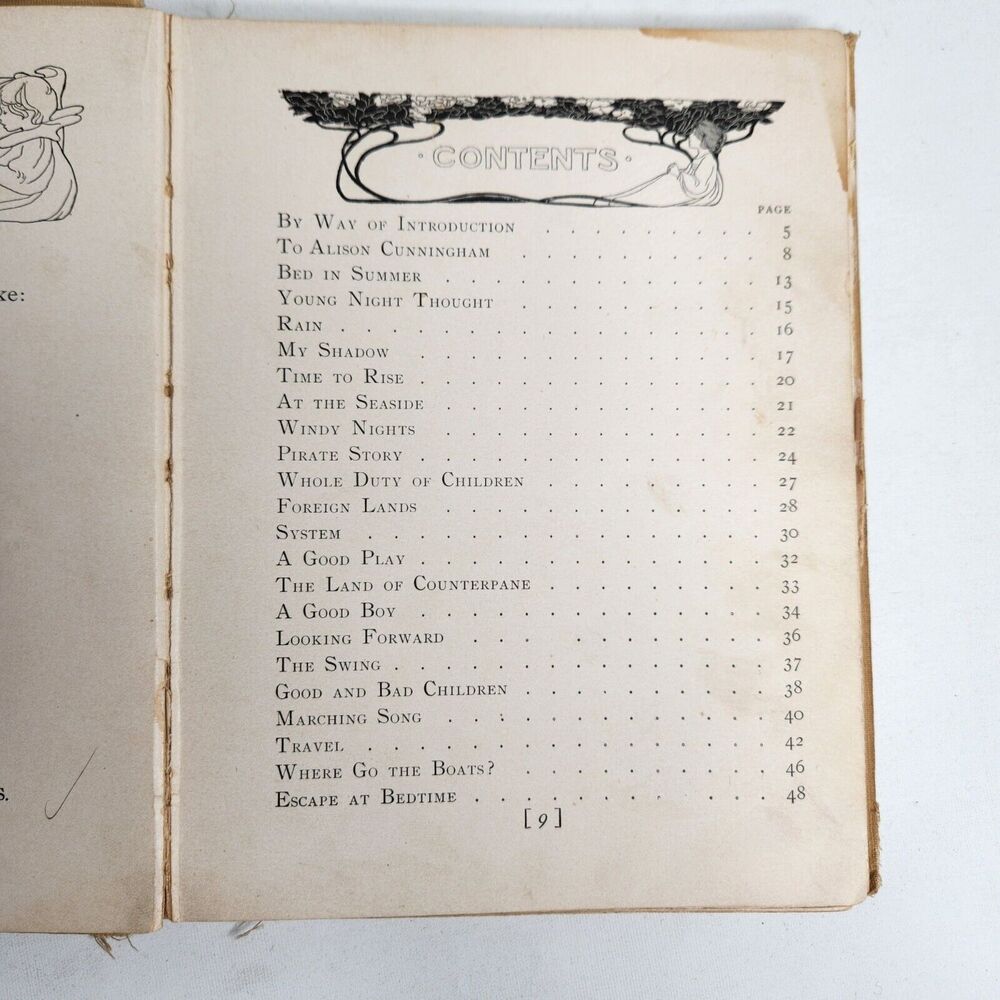 xe:
s.
· CONTENTS ·
PAGE
BY WAY OF INTRODUCTION . . . . . . . . . . 5
TO ALISON CUNNINGHAM . . . . . . . . . . . 8
BED IN SUMMER . . . . . . . . . . . . . . 13
YOUNG NIGHT THOUGHT . . . . . . . . . . . 15
RAIN . . . . . . . . . . . . . . . . . . 16
MY SHADOW . . . . . . . . . . . . . . . 17
TIME TO RISE . . . . . . . . . . . . . . . 20
AT THE SEASIDE . . . . . . . . . . . . . . 21
WINDY NIGHTS . . . . . . . . . . . . . . 22
PIRATE STORY . . . . . . . . . . . . . . . 24
WHOLE DUTY OF CHILDREN . . . . . . . . . . 27
FOREIGN LANDS . . . . . . . . . . . . . . 28
SYSTEM . . . . . . . . . . . . . . . . . 30
A GOOD PLAY . . . . . . . . . . . . . . . 32
THE LAND OF COUNTERPANE . . . . . . . . . . 33
A GOOD BOY . . . . . . . . . . . . . . . 34
LOOKING FORWARD . . . . . . . . . . . . . 36
THE SWING . . . . . . . . . . . . . . . . 37
GOOD AND BAD CHILDREN . . . . . . . . . . . 38
MARCHING SONG . . . . . . . . . . . . . . 40
TRAVEL . . . . . . . . . . . . . . . . . 42
WHERE GO THE BOATS? . . . . . . . . . . . 46
ESCAPE AT BEDTIME . . . . . . . . . . . . . 48
[ 9 ]